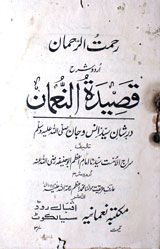 رحمت الرحمان
اردو شرح
قصيدة النعمان
در شان سید الانس و جان صلی اللہ علیہ وسلم
تالیف
سراج الامت سیدنا امام اعظم ابو حنیفہ رضی اللہ عنہ
مکتبہ نعمانیہ
اقبال روڈ
سیالکوٹ